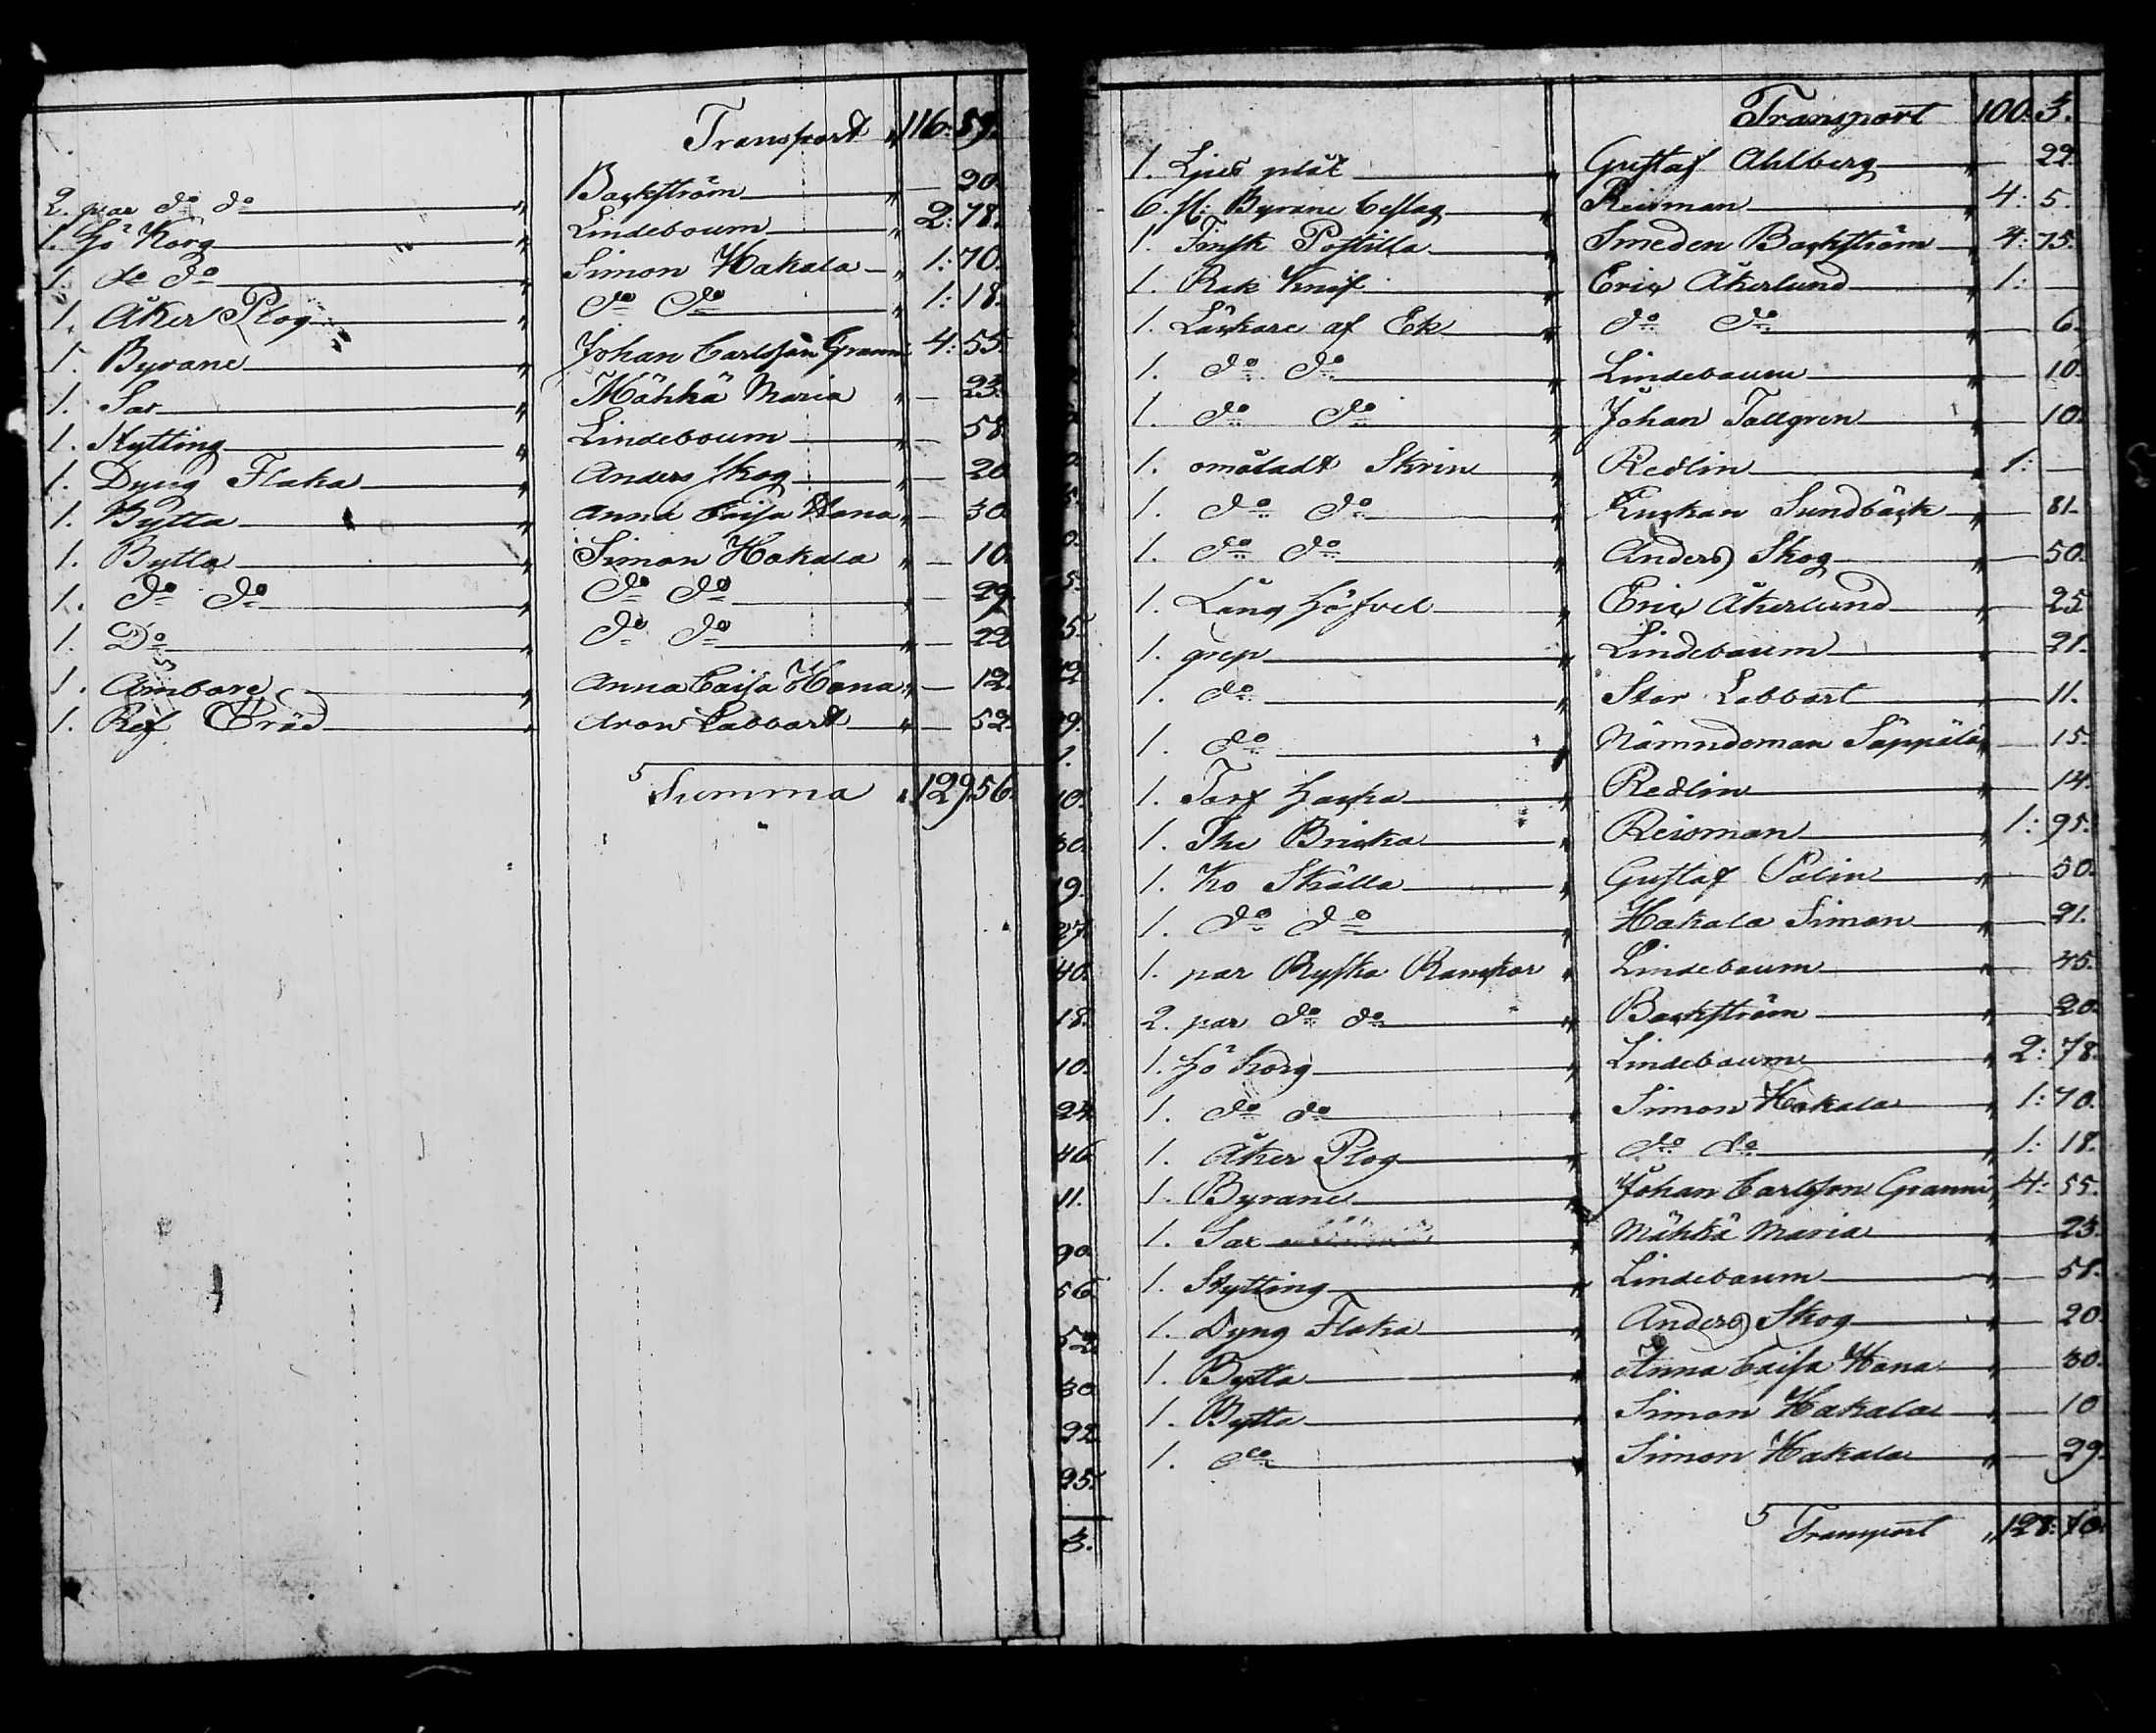 Transport " 116. 59.
2. par do do " Backström " — 20.
1. Hö Korg " Lindeboum " 2: 78.
1. do do " Simon Hakala " 1: 70.
1. Åker Plog " do do " 1: 18.
1. Byrane " Johan Carlsson Grann 4: 55.
1. Sar " Mähkä Maria " — 23.
1. Kytting " Lindeboum " — 58
1. Dyng Flaka " Anders Skog " — 20
1. Bytta " Anna Caisa Hana " — 30
1. Bytta " Simon Hakala " — 10.
1. do do " do do " — 29
1. Do " do do " — 22
1. Ämbare " Anna Caisa Hana " — 12.
1. Ref Bräd " Aron Labbart " — 52.
Summa " 129. 56.
Transport 100. 3.
1. Ljus plåt " Gustaf Ahlberg " — 22
6. st: Byrane beslag " Reisman " 4: 5.
1. Finsk Postilla " Smeden Backström " 4: 75.
1. Rak Knif " Eric Åkerlund " 1: —
1. Läskare af Ek " do do " — 6.
1. do do " Lindebaum " — 10.
1. do do " Johan Tallgren " — 10.
1. omåladt Skrin " Redlin " 1: —
1. do do " Enckan Sundbäck " — 81.
1. do do " Anders Skog " — 50.
1. Lång Höfvel " Eric Åkerlund " — 25
1. grep " Lindebaum " — 21.
1. do " Stor Labbart " — 11.
1. do " Nämndeman Säppälä " — 15.
1. Torf Hacka " Redlin " — 14.
1. The Bricka " Reisman " 1: 95.
1. Ko Skälla " Gustaf Palin " — 50.
1. do do " Hakala Simon " — 21.
1. par Ryska " Lindebaum " — 45.
2. par do do " Backström " — 20.
1. Hö Korg " Lindebaum " 2: 78.
1. do do " Simon Hakala " 1: 70.
1. Åker Plog " do do " 1: 18.
1. Byrane " Johan Carlsson Grann 4: 55.
1. Sar " Mähkä Maria " — 23.
1. Kytting " Lindebaum " — 58.
1. Dyng Flaka " Anders Skog " — 20
1. Bytta " Anna Caisa Hana " — 30.
1. Bytta " Simon Hakala " — 10
1. do " Simon Hakala " — 29.
Transport " 128: 70.